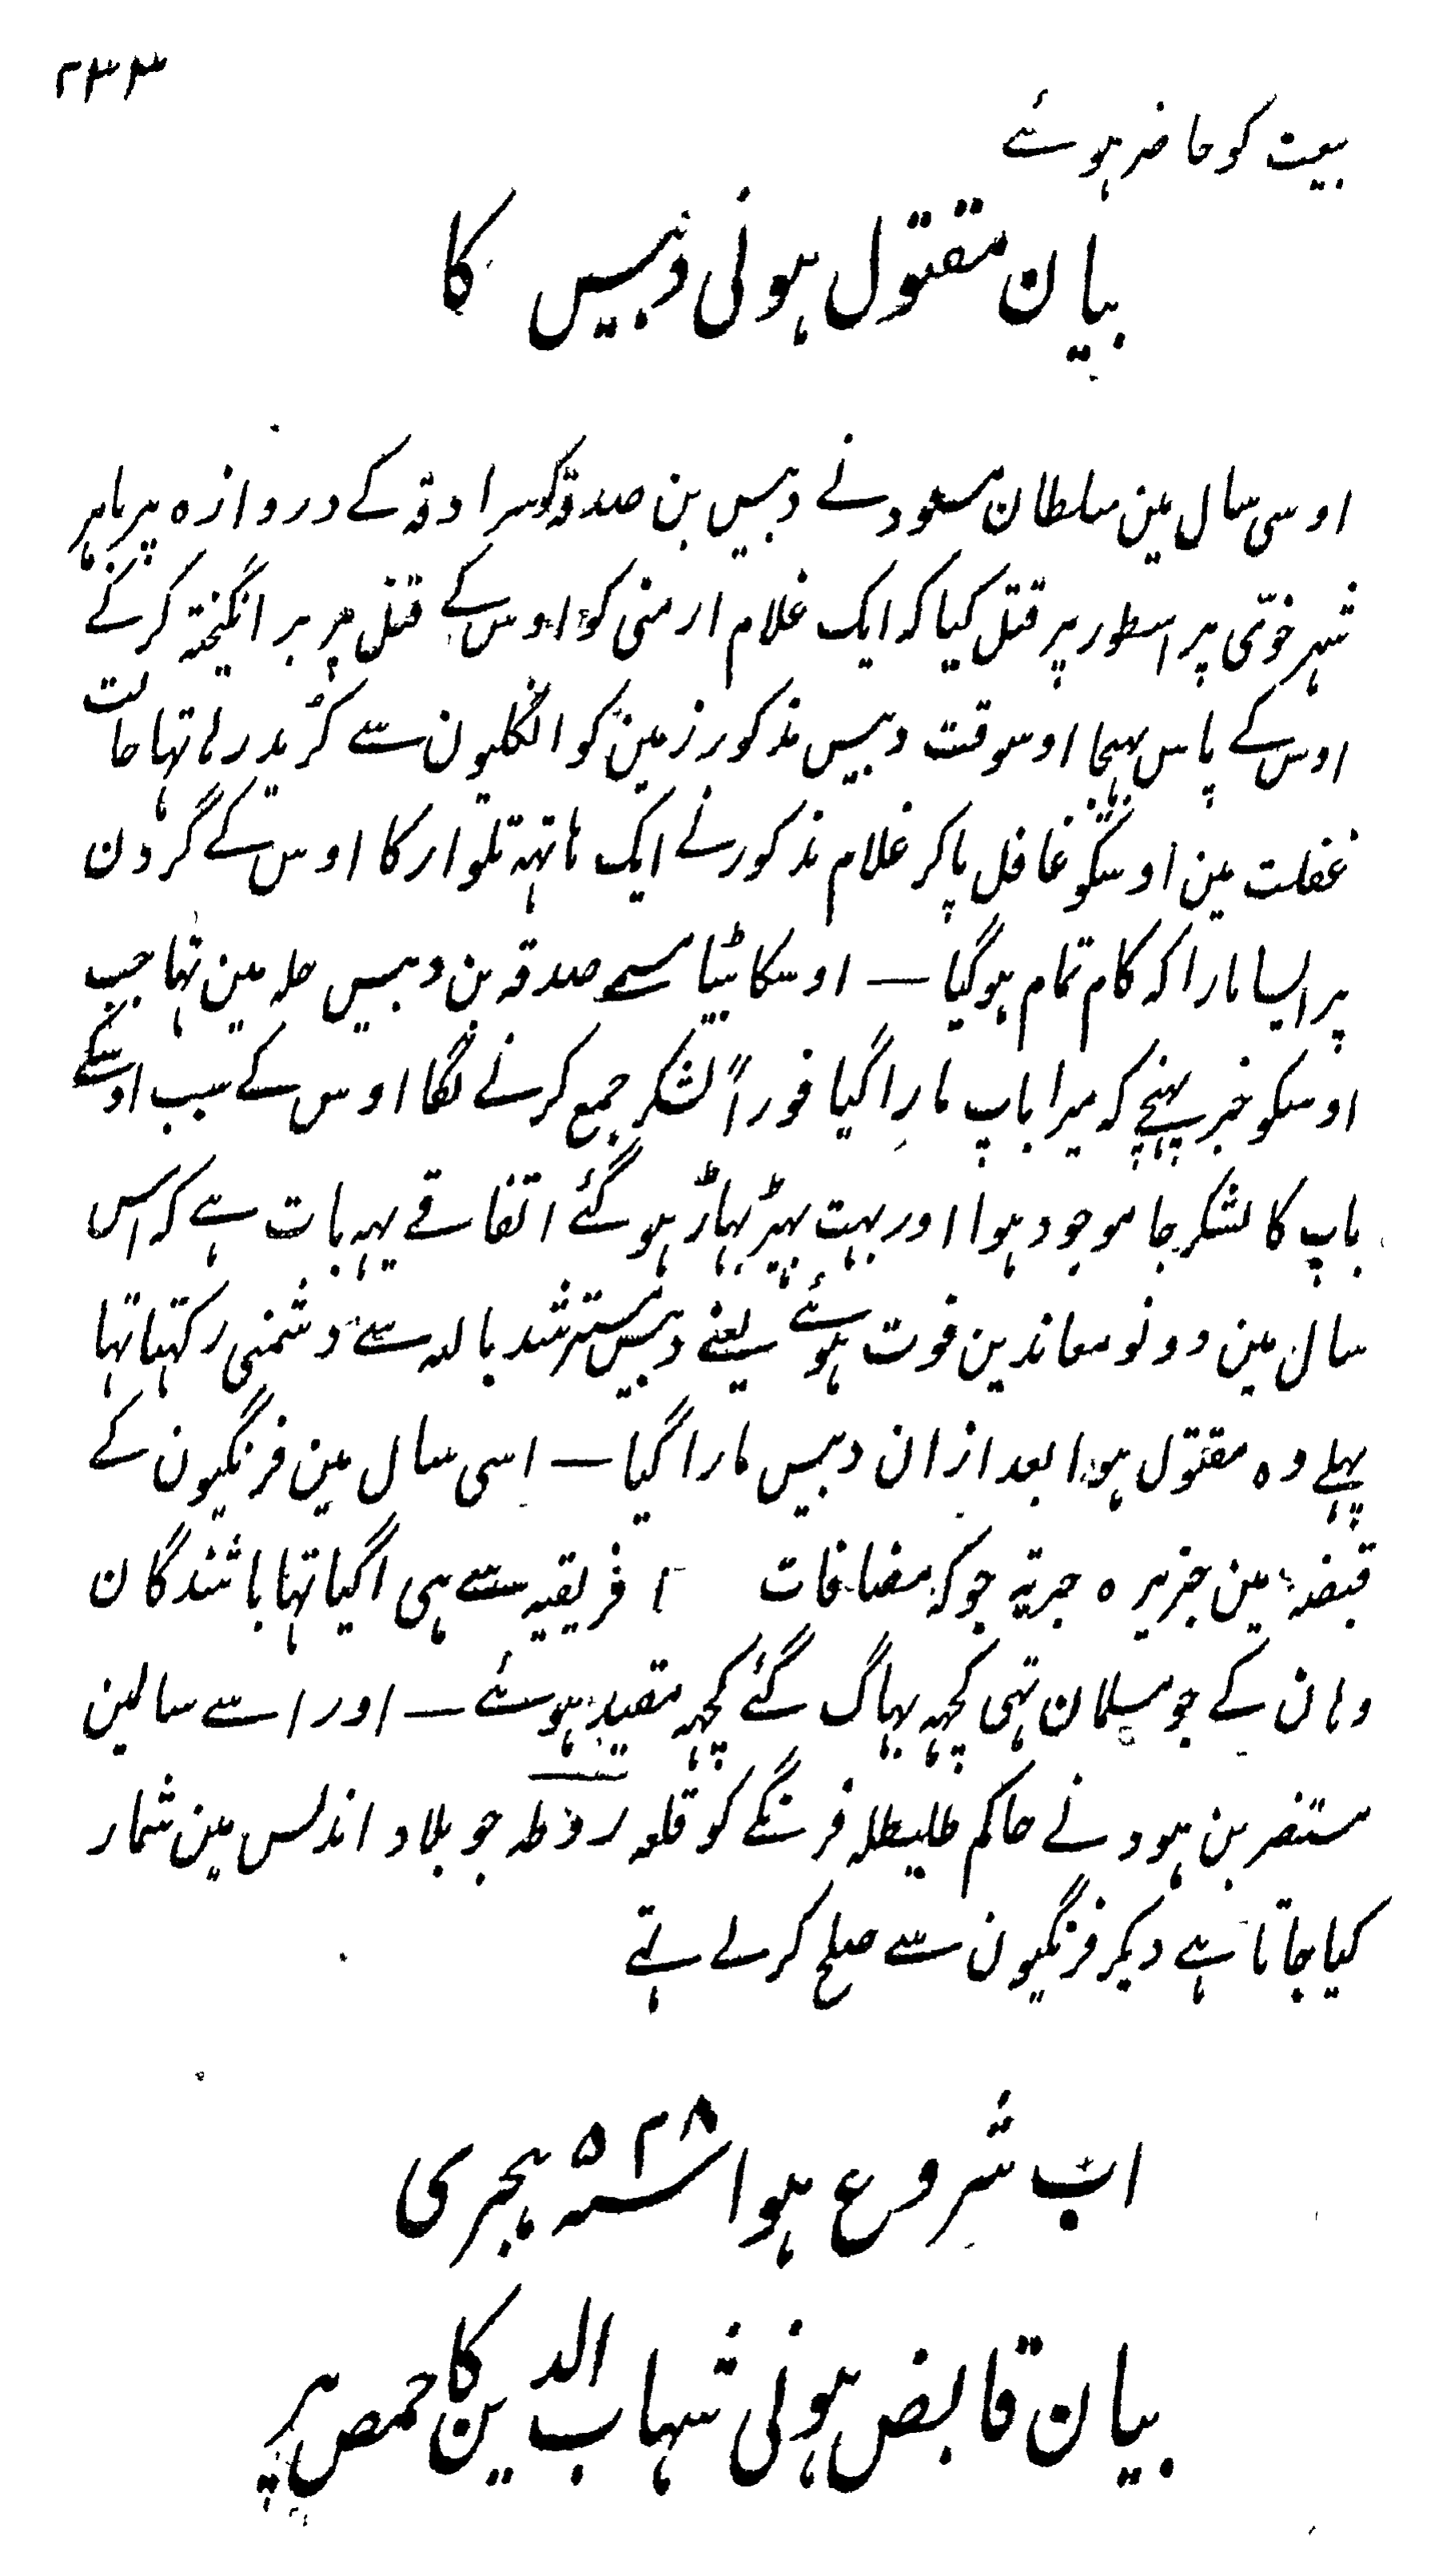 ۲۳۳
بیعت کو حاضر ہوئے
بیان مقتول ہونی دبیس کا
اوسی سال مین سلطان مسعود نے دبیس بن صدقہ کو سرادقہ کے دروازہ پر باہر
شہر خوّی پر اسطور پر قتل کیا کہ ایک غلام ارمنی کو اوس کے قتل پر بر انگیختہ کر کے
اوس کے پاس بہیجا اوسوقت دبیس مذکور زمین کو انگلیون سے کُرید رہا تہا حالت
غفلت مین اوسکو غافل پا کر غلام مذکور نے ایک ہاتہہ تلوار کا اوس کے گردن
پر ایسا مارا کہ کام تمام ہو گیا — اوسکا بیٹا مسمے صدقہ بن دبیس حلہ مین تہا جب
اوسکو خبر پہنچے کہ میرا باپ مارا گیا فوراً لشکر جمع کرنے لگا اوس کے سبب اوسکے
باپ کا لشکر جا موجود ہوا اور بہت بہیڑ بہاڑ ہو گئے اتفاقے یہہ بات ہے کہ اس
سال مین دونو معاندین فوت ہوئے یعنے دبیس مسترشد باللہ سے دشمنی رکہتا تہا
پہلے وہ مقتول ہوا بعد ازان دبیس مارا گیا — اسی سال مین فرنگیون کے
قبضہ مین جزیرہ جربة جو کہ مضافات افریقیہ سے ہی اگیا تہا باشندگان
وہان کے جو مسلمان تہی کچہہ بہاگ گئے کچہہ مقید ہوئے — اور اسے سالمین
مستنصر بن ہود نے حاکم طلیطلہ فرنگے کو قلعہ روطہ جو بلاد اندلس مین شمار
کیا جاتا ہے دیکر فرنگیون سے صلح کر لے تہے
اب شروع ہوا سنہ ۵۲۸ ہجری
بیان قابض ہونی شہاب الدین کا حمص پر